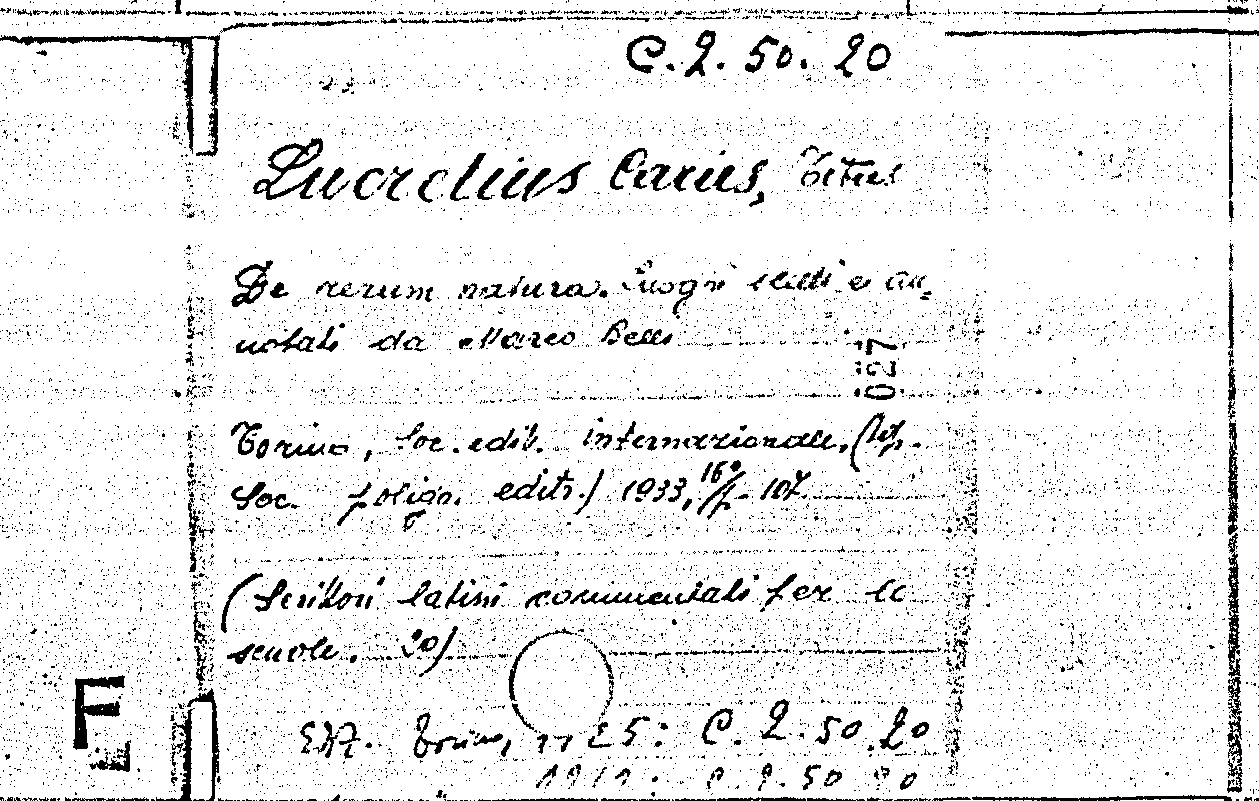 C. 2. 50. 20
Lucretius Carus, Titus
De rerum natura. Luoghi scelti e an-
notati da Marco Belli
027
Torino, Soc. edit. internazionale, (tip.
Soc. poligr. editr.) 1933, 16° p. 107
(Scrittori latini commentati per le
scuole. 20)
E
Torino, C. 2. 50. 20